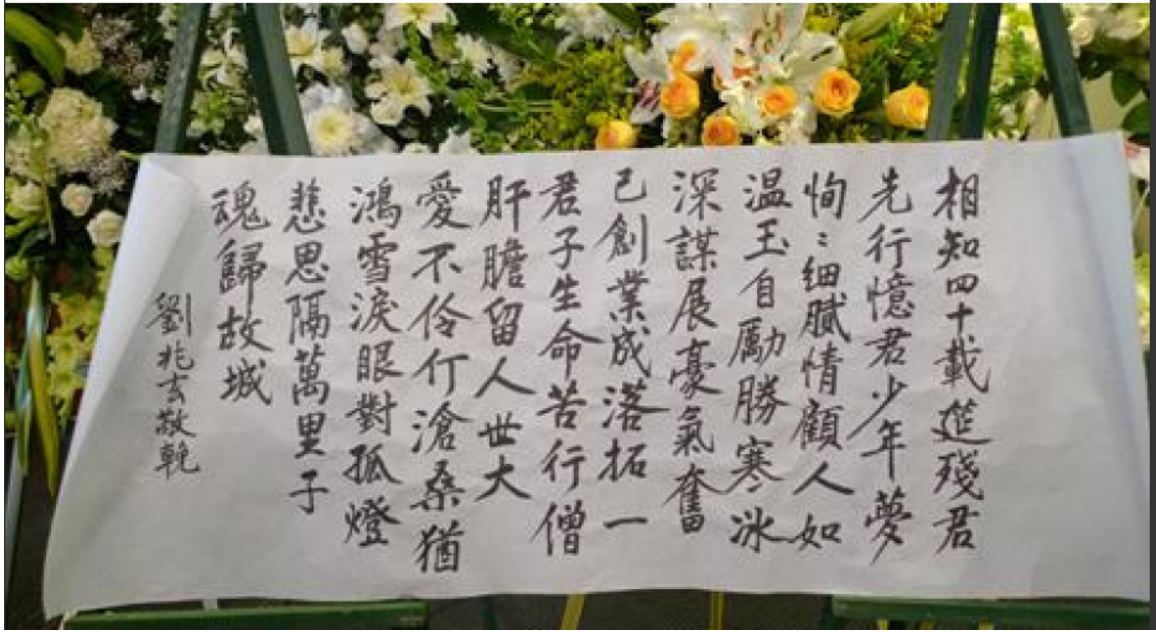 相知四十載筵殘君
先行憶君少年夢
恂:細膩情顧人如
温玉自勵勝寒冰
深謀展豪氣奮
己創業成落拓一
君子生命苦行僧
肝膽留人世大
愛不伶仃滄桑猶
鴻雪淚眼對孤燈
悲思隔萬里子
魂歸故城
劉兆玄敬輓